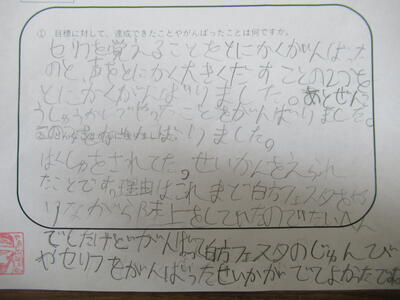 ① 目標に対して、達成できたことやがんばったことは何ですか。
セリフを覚えることをとにかくがんばった
のと、声をとにかく大きくだすことの2つを
とにかくがんばりました。あとせん
りました。
はくしゅをされてた。せいかんをえられ
たことです。理由は、これまで白方フェスタをや
りながら陸上をしていたのでたいへん
でしたけどがんばって白方フェスタのじゅんび
やセリフをがんばったせいかがでてよかったですね